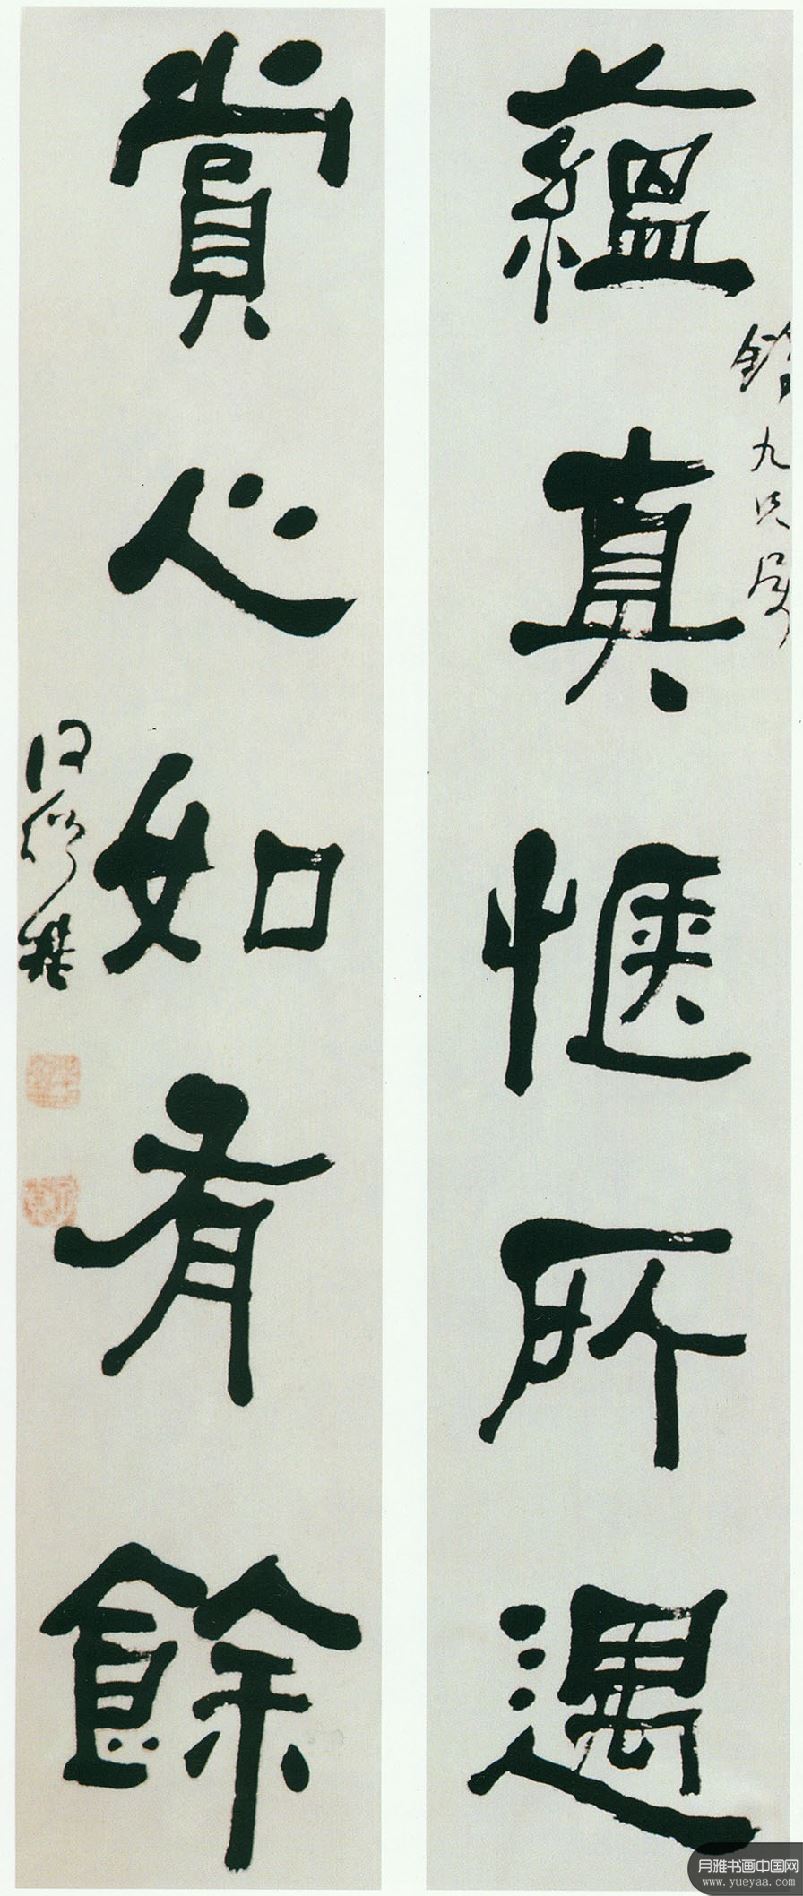 蘊真愜所遇
九兄屬
賞心如有餘
何紹基
月雅书画中国网
www.yueyaa.com